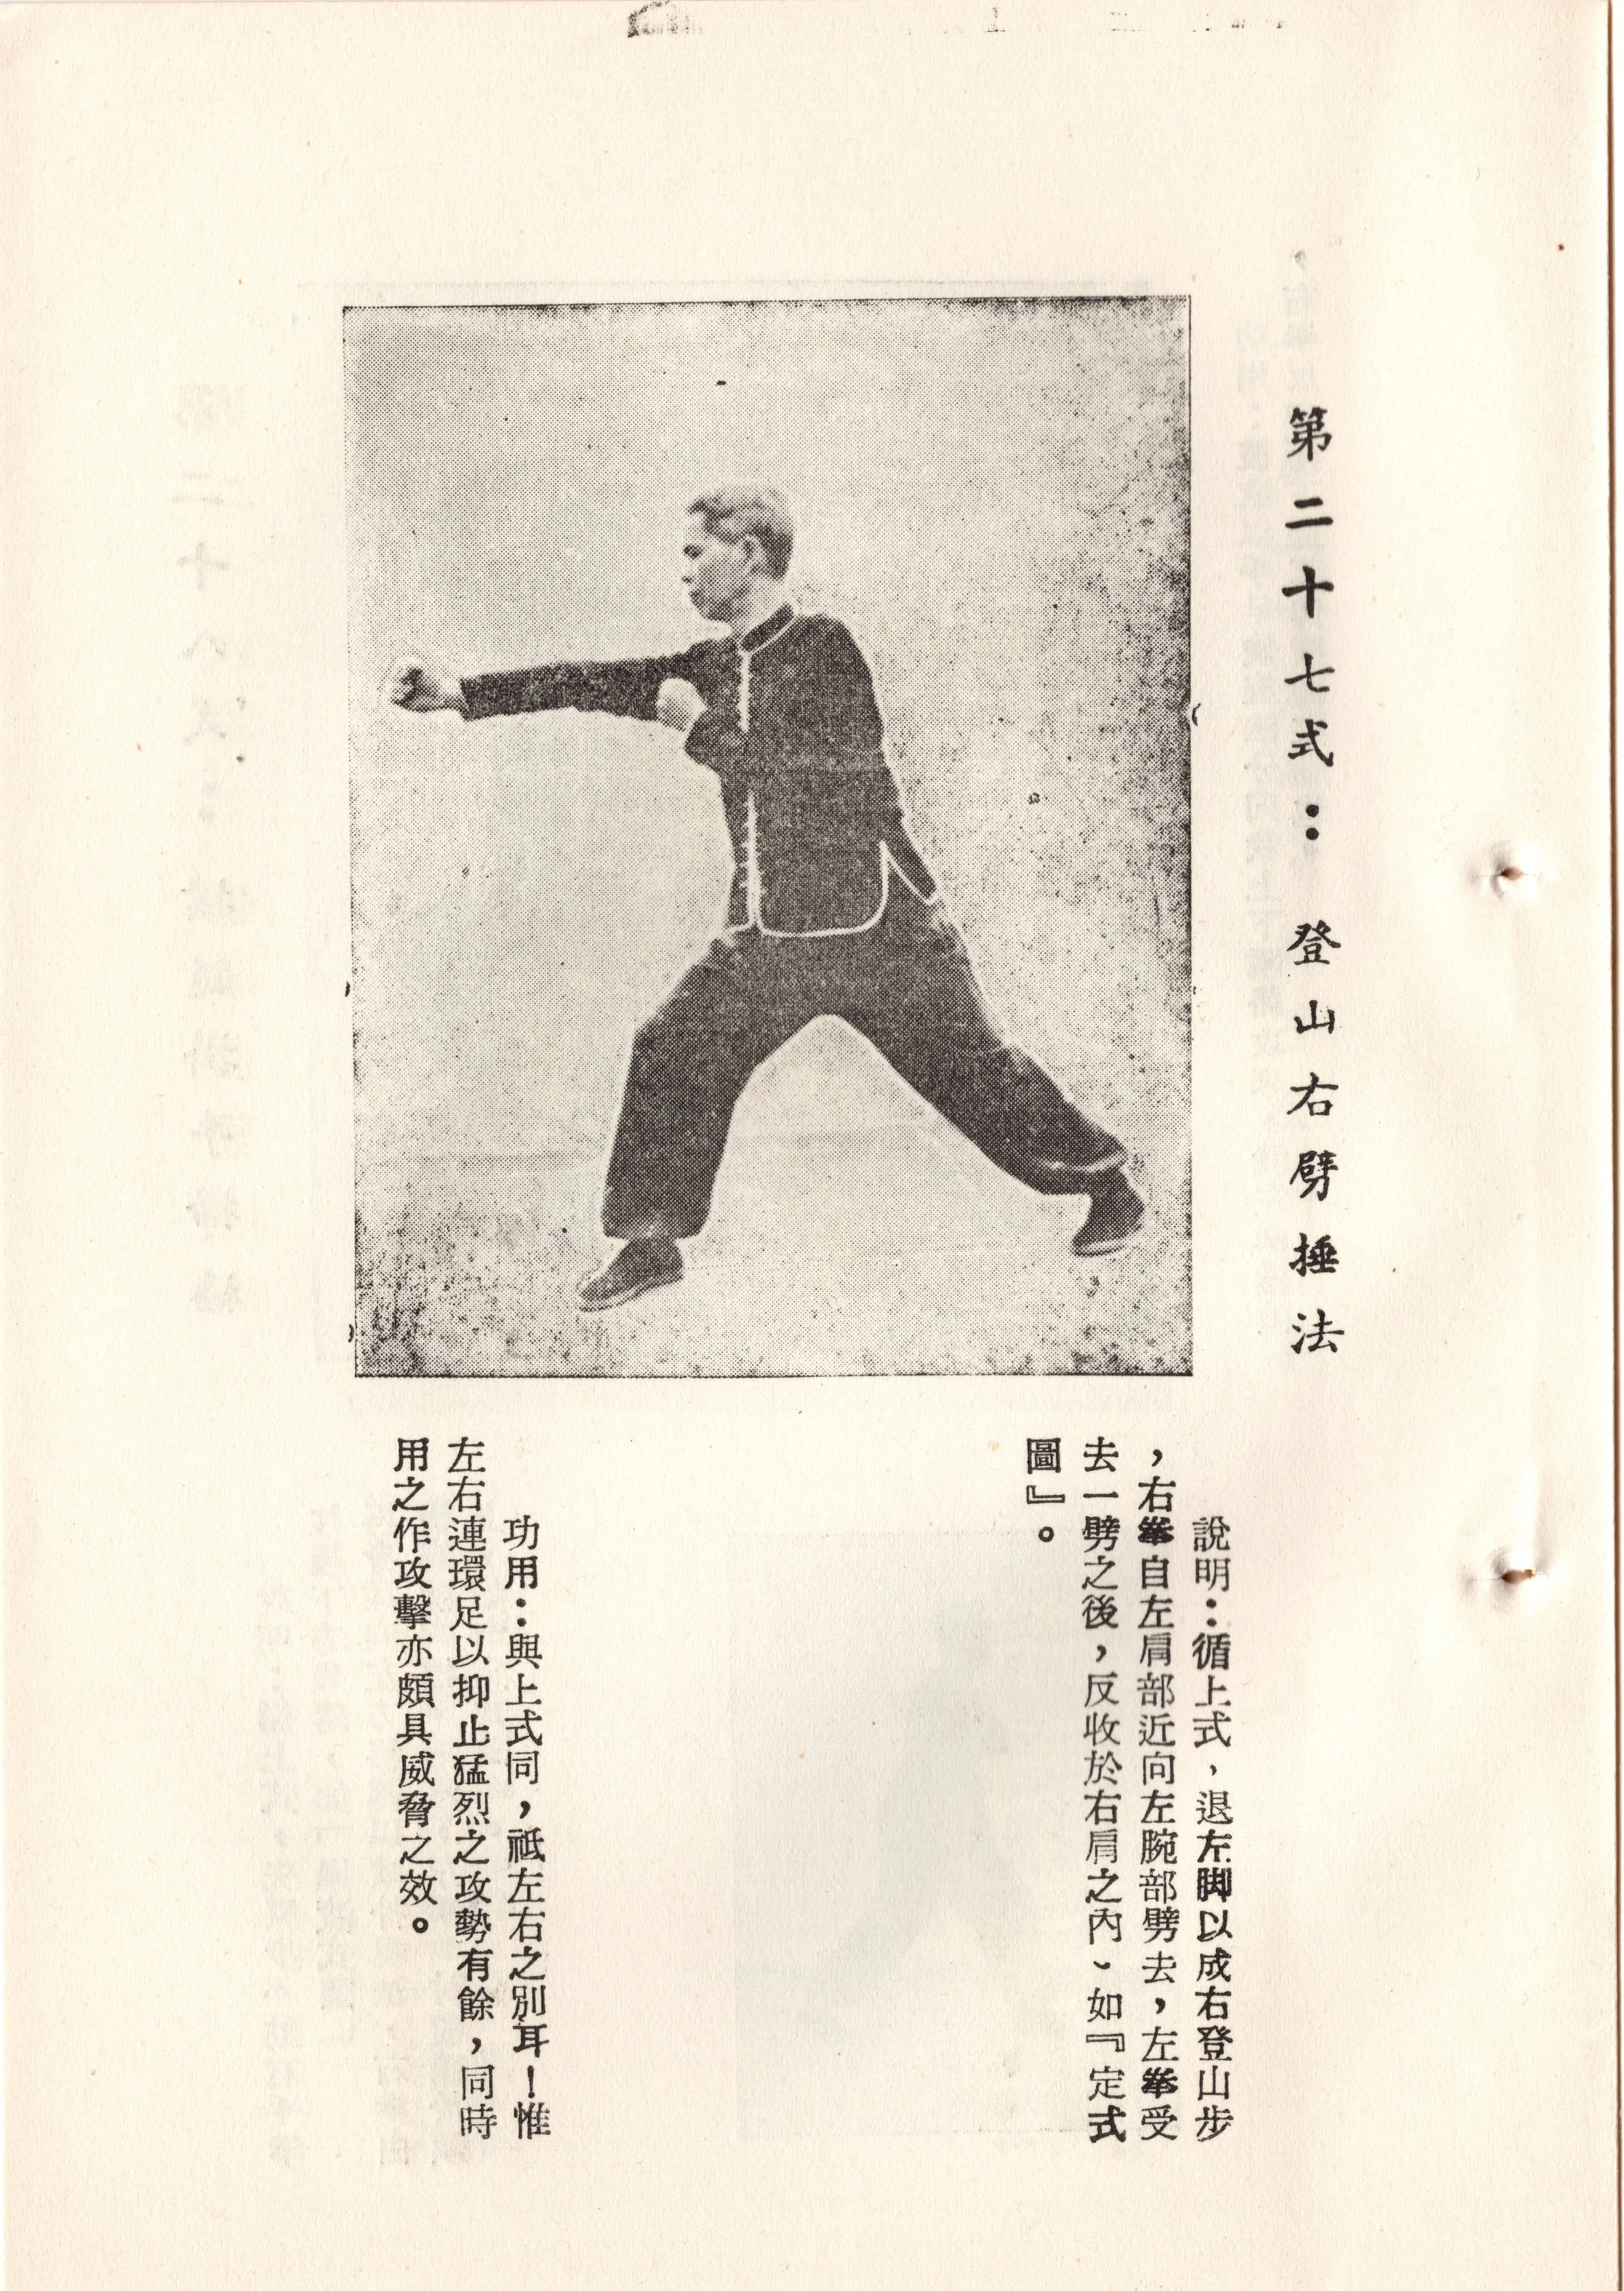 第二十七式：登山右劈捶法
說明：循上式，退左脚以成右登山步
，右拳自左肩部近向左腕部劈去，左拳受
去一劈之後，反收於右肩之內、如『定式
圖』。
功用：與上式同，祗左右之別耳！惟
左右連環足以抑止猛烈之攻勢有餘，同時
用之作攻擊亦頗具威脅之效。